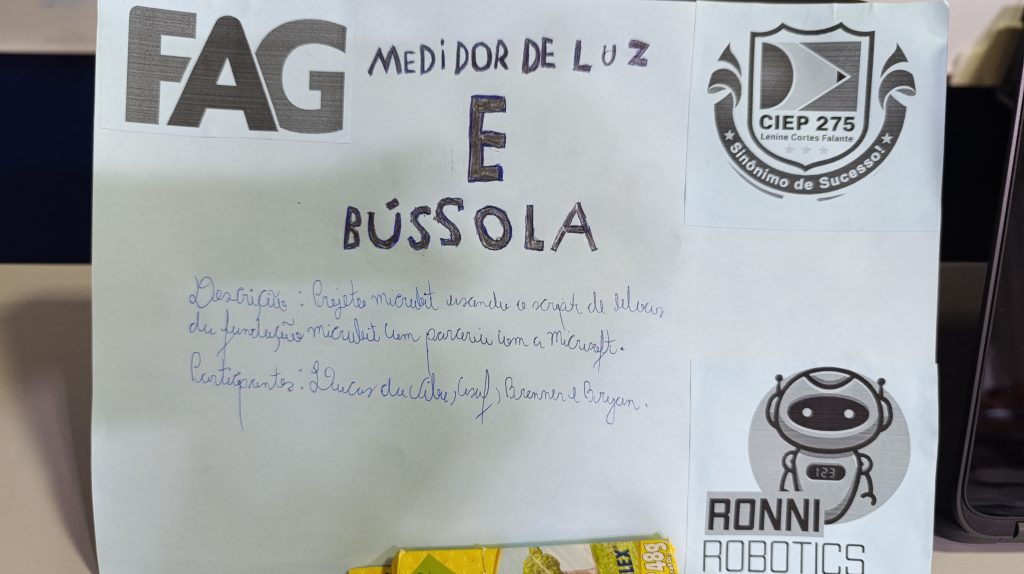 FAG
MEDIDOR DE LUZ
E
BÚSSOLA
CIEP 275
Lenine Cortes Falante
Sinônimo de Sucesso!
Descrição: Projeto microbit usando o script de blocos
da fundação microbit com parceria com a Microsoft.
Participantes: Lucas da, Brenner e Bryan.
123
RONNI
ROBOTICS
LEX
48g